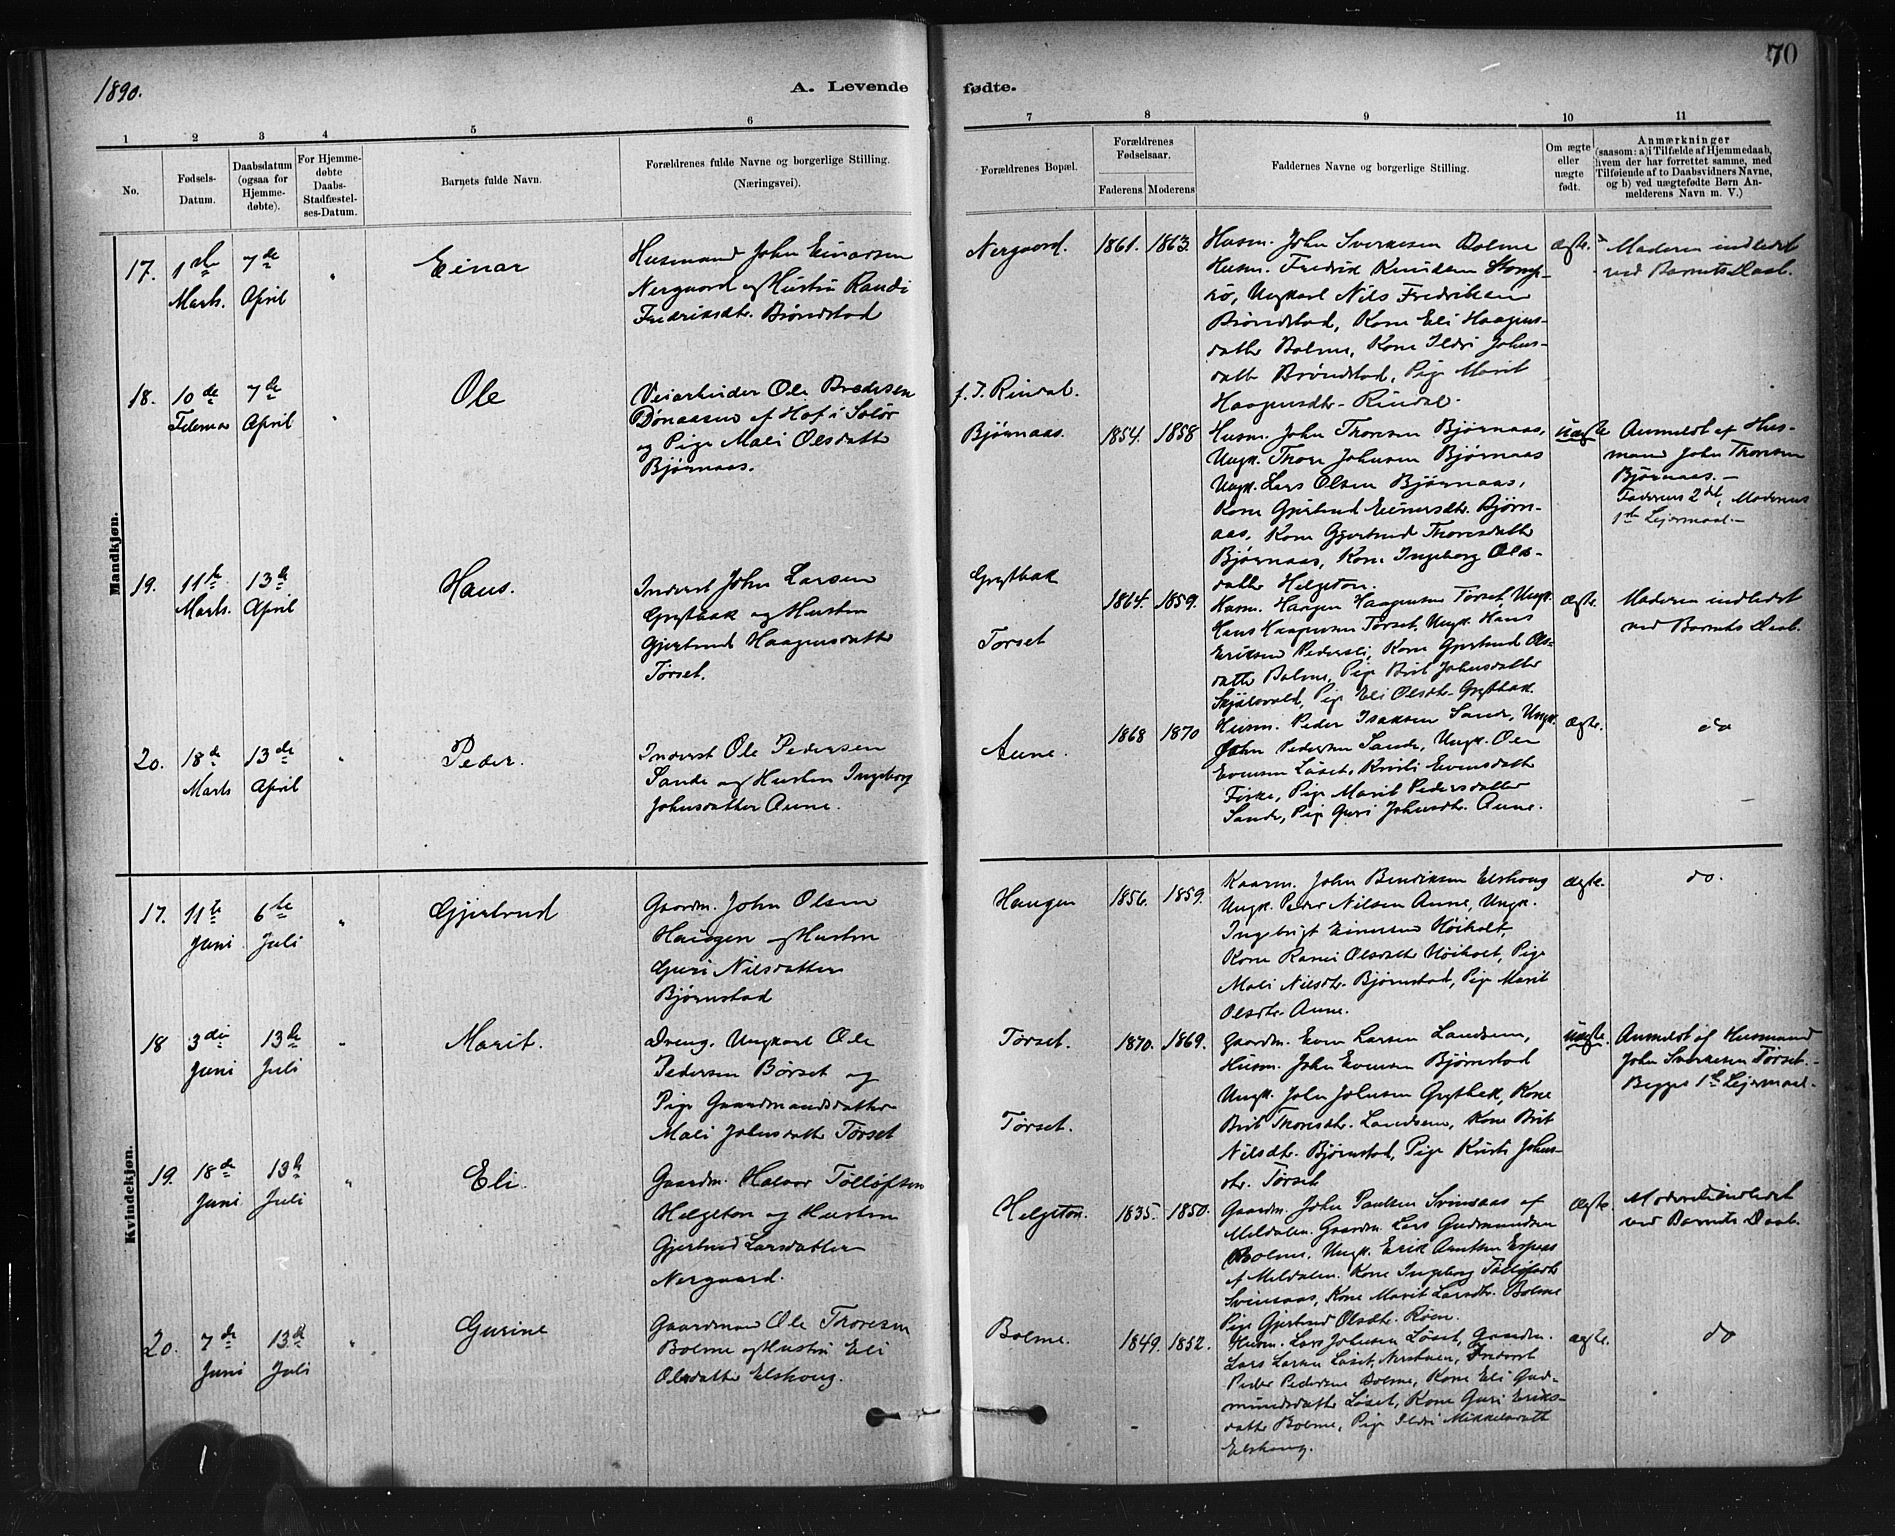 1890.
A. Levende fødte.
70
1
2
3
4
5
6
7
8
9
10
11
No.
Fødsels-
Datum.
Daabsdatum
(ogsaa for
Hjemme-
døbte).
For Hjemme-
døbte
Daabs-
Stadfæstel-
ses-Datum.
Barnets fulde Navn.
Forældrenes fulde Navne og borgerlige Stilling.
(Næringsvei).
Forældrenes Bopæl.
Forældrenes
Fødselsaar.
Faderens.
Moderens
Faddernes Navne og borgerlige Stilling.
Om ægte
eller
uægte
født.
Anmærkninger
(saasom: a) i Tilfælde af Hjemmedaab,
hvem der har forrettet samme, med
Tilføiende af to Daabsvidners Navne,
og b) ved uægtefødte Børn An-
melderens Navn m. V.)
Mandkjøn.
17.
1ste
Marts.
7de
April
"
Einar
Husmand John Einarsen
Nergaard og Hustru Randi
Fredriksdtr. Brøndstad
Nergaard.
1861.
1863.
Husm. John Sverkesen Bolme
Husm. Fredrik Knudsen Stomp-
rø, Ungkarl Nils Fredriksen
Brøndstad, Kone Eli Haagens-
datter Bolme, Kone Ildri Johns-
datter Brøndstad, Pige Marit
Haagensdtr. Rindal.
Ægte.
Moderen indledet
ved Barnets Daab.
18.
10de
Februar
7de
April
"
Ole
Veiarbeider Ole Bredesen
Dønaasen af Hof i Solør
og Pige Mali Olsdatter
Bjørnaas.
f. T. Rindal.
Bjørnaas.
1854.
1858
Husm. John Thoresen Bjørnaas,
Ungk. Thore Johnsen Bjørnaas
Ungk. Lars Olsen Bjørnaas,
Kone Gjertrud Einarsdtr. Bjørn-
aas, Kone Gjertrud Thoresdatter
Bjørnaas, Kone Ingeborg Ols-
datter Helgeton.
uægte
Anmeldt af Hus-
mand John Thoresen
Bjørnaas. —
Faderens 2det, Moderens
1ste Lejermaal. —
19.
11te
Marts.
13de
April
Hans.
Inderst John Larsen
Grytbak og Hustru
Gjertrud Haagensdatter
Tørset.
Grytbak
Tørset
1864.
1859.
Husm. Haagen Haagensen Tørset, Ungk.
Hans Haagensen Tørset, Ungk. Hans
Eriksen Pedersli, Kone Gjertrud Ols-
datter Bolme, Pige Brit Johnsdatter
Skjølsvold, Pige Eli Olsdtr. Grytbak.
Ægte.
Moderen indledet
ved Barnets Daab.
20.
18de
Marts
13de
April
"
Peder.
Inderst Ole Pedersen
Sande og Hustru Ingeborg
Johnsdatter Aune.
Aune.
1868
1870
Husm. Peder Isaksen Sande, Ungk.
John Pedersen Sande, Ungk. Ole
Evensen Løset, Kone Evensdatter
Fiske, Pige Marit Pedersdatter
Sande, Pige Guri Johnsdtr. Aune.
Ægte.
do
Kvindekjøn.
17.
11te
Juni
6te
Juli
"
Gjertrud
Gaardm. John Olsen
Haugen og Hustru
Guri Nilsdatter
Bjørnstad
Haugen
1856.
1859.
Kaarm. John Bendiksen Elshaug
Ungk. Peder Nilsen Aune, Ungk.
Ingebrigt Einarsen Høiholt,
Kone Randi Olsdatter Høiholt, Pige
Mali Nilsdtr. Bjørnstad, Pige Marit
Olsdtr. Aune.
Ægte.
do.
18
3die
Juni
13de
Juli
"
Marit.
Dreng. Ungkarl Ole
Pedersen Børset og
Pige Gaardmandsdatter
Mali Johnsdatter Tørset
Tørset.
Tørset.
1870.
1869.
Gaardm. Even Larsen Landsem,
Husm. John Evensen Bjørnstad
Ungk. John Johnsen Grytbak, Kone
Brit Thoresdtr. Landsem, Kone Brit
Nilsdtr. Bjørnstad, Pige Kirsti Johns-
dtr. Tørset
uægte.
Anmeldt af Husmand
John Sverkesen Tørset.
Begges 1ste Lejermaal.
19.
18de
Juni
13de
Juli
"
Eli.
Gaardm. Halvor Tølløfsen
Helgeton og Hustru
Gjertrud Larsdatter
Nergaard.
Helgeton.
1835.
1850.
Gaardm. John Paulsen Svinsaas af
Meldalen. Gaardm. Lars Gudmundsen
Bolme. Ungk. Erik Arntsen Espaas
af Meldalen. Kone Ingeborg Tølløfsdtr.
Svinsaas, Kone Marit Larsdtr. Bolme
Pige Gjertrud Olsdtr. Røen.
Ægte.
Moderen indledet
ved Barnets Daab.
20.
7de
Juni
13de
Juli
"
Gurine
Gaardmand Ole Thoresen
Bolme og Hustru Eli
Olsdatter Elshaug.
Bolme.
1849.
1852.
Husm. Lars Johnsen Løset, Gaardm.
Lars Larsen Løset, Inderst
Peder Pedersen Bolme, Kone Eli Gud-
mundsdatter Løset, Kone Guri Eriks-
datter Bolme, Pige Ildri Mikkelsdatter
Elshaug.
ægte.
do